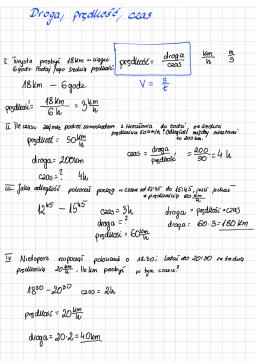 Droga, prędkość, czas
I. Turysta przebył 18km w ciągu
6 godz. Podaj jego średnią prędkość.
prędkość = droga/czas km/h m/s
V = s/t
18km - 6 godz
prędkość = 18km/6h = 3 km/h
II. Ile czasu zajmie podróż samochodem z
do Łodzi po średnią
200 km?
prędkość = 50 km/h
droga = 200km
czas = ? 4h
czas = droga/prędkość = 200/50 = 4h
III. Jaką odległość pokonał pociąg w czasie od 12:45 do 15:45, jeśli jechał
z prędkością 60 km/h
12⁴⁵ - 15⁴⁵
czas = 3h
droga = ?
prędkość = 60 km/h
droga = prędkość · czas
droga = 60·3 = 180km
IV. Nietoperz rozpoczął polowanie o 18:30, latał do 20:30 ze średnią
prędkością 20 km/h. Ile km przebył w tym czasie?
18³⁰ - 20³⁰ czas = 2h
prędkość = 20 km/h
droga = 20·2 = 40km